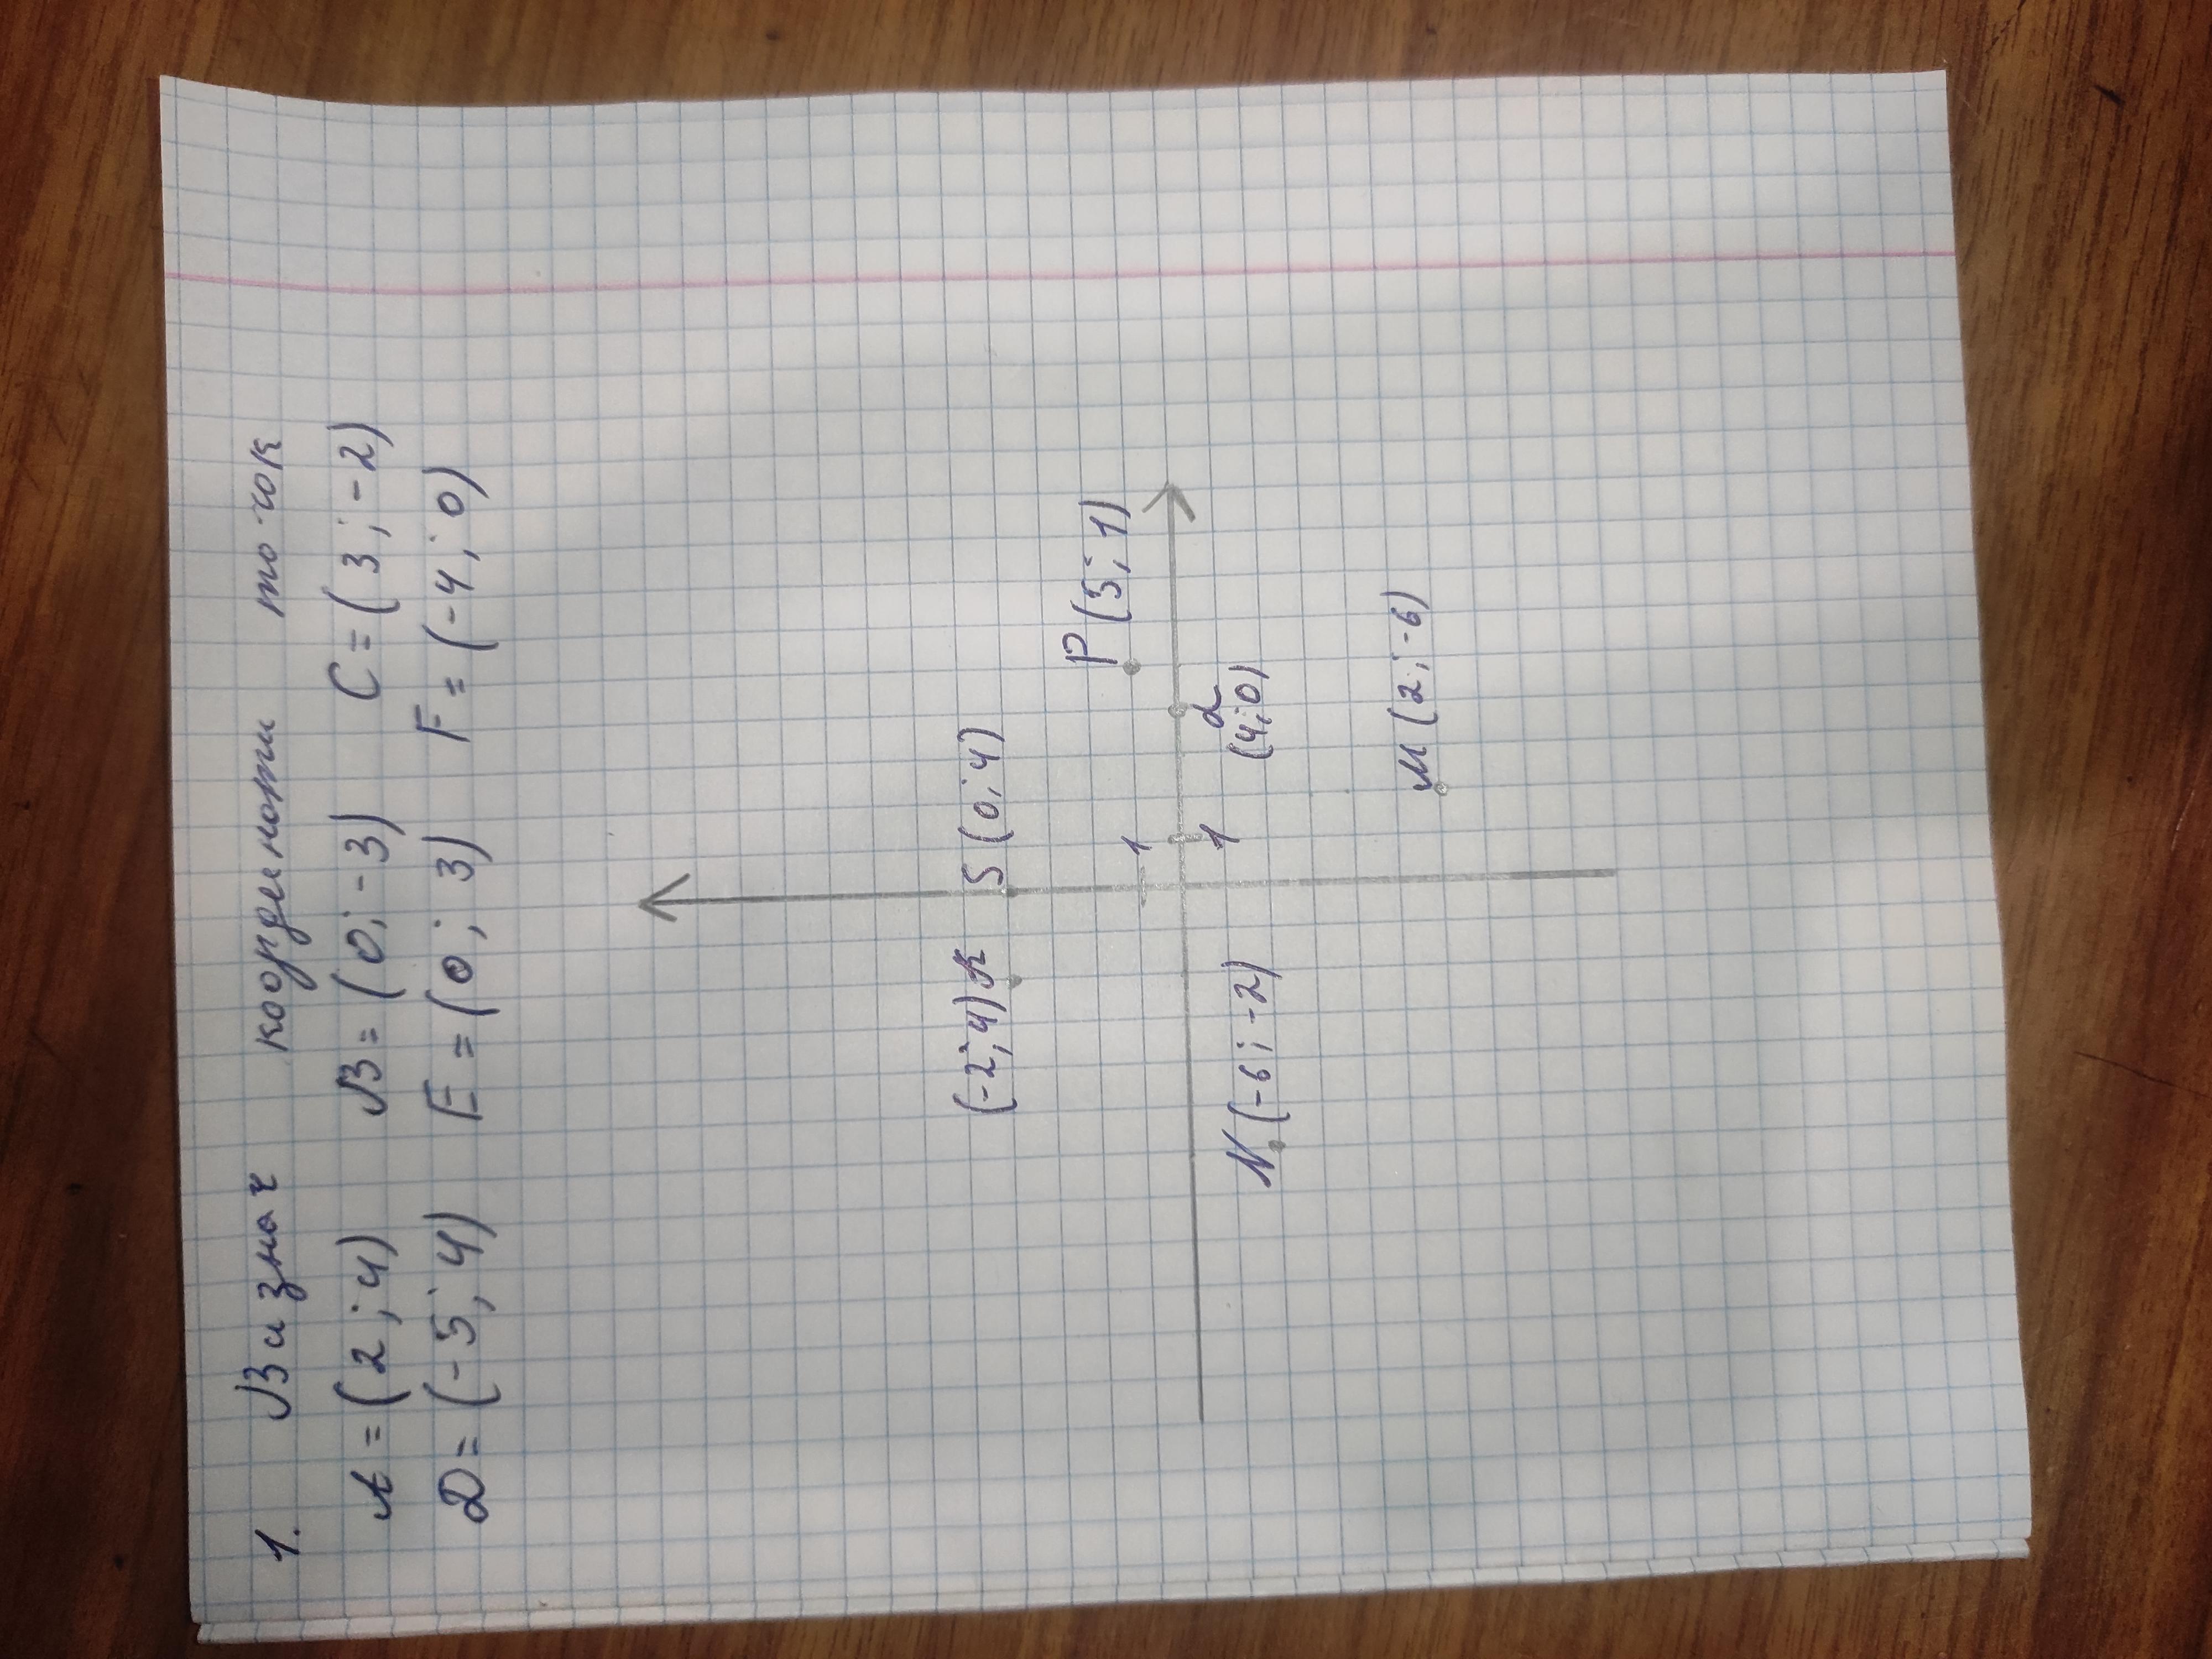 1. Визнач координати точок
A = (2; 4) B = (0; -3) C = (3; -2)
D = (-5; 4) E = (0; 3) F = (-4; 0)
(-2; 4) K S (0; 4)
P (5; 1)
1
1 L
(4; 0)
N (-6; -2)
M (2; -6)